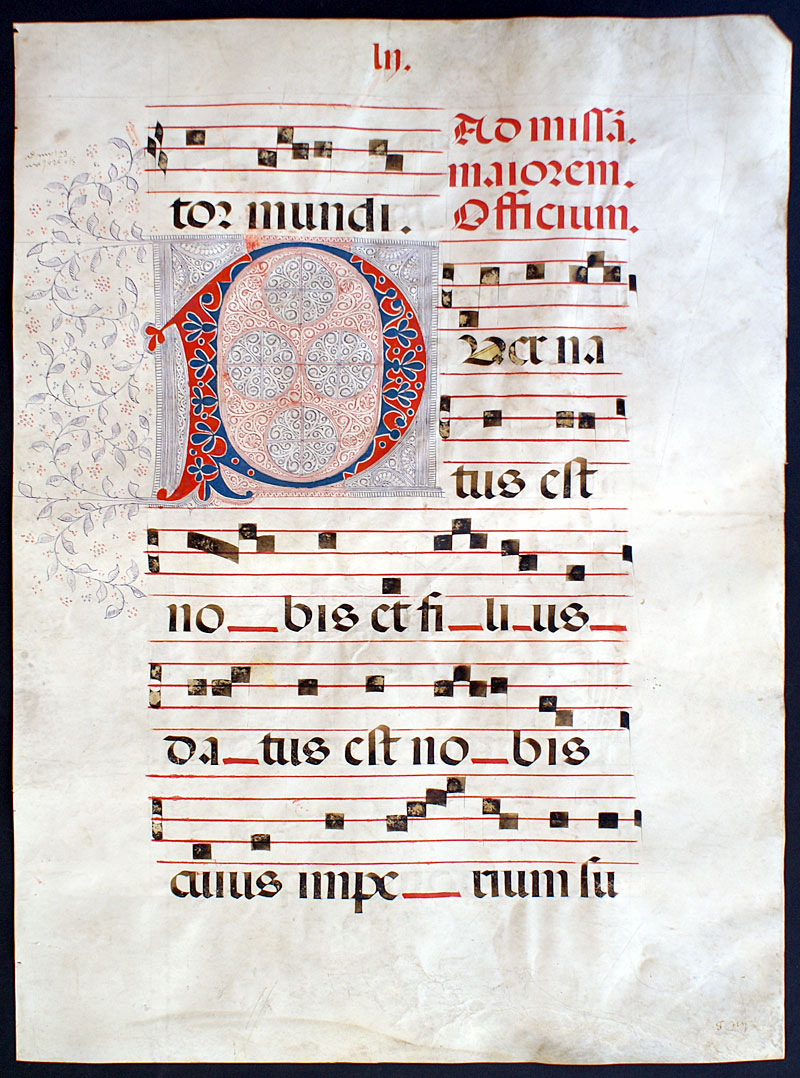 lij.
Ad missã
maiorem.
tor mundi.
Officium.
P
Uer na
tus est
no bis et fi li us
da tus est no bis
cuius impe rium su